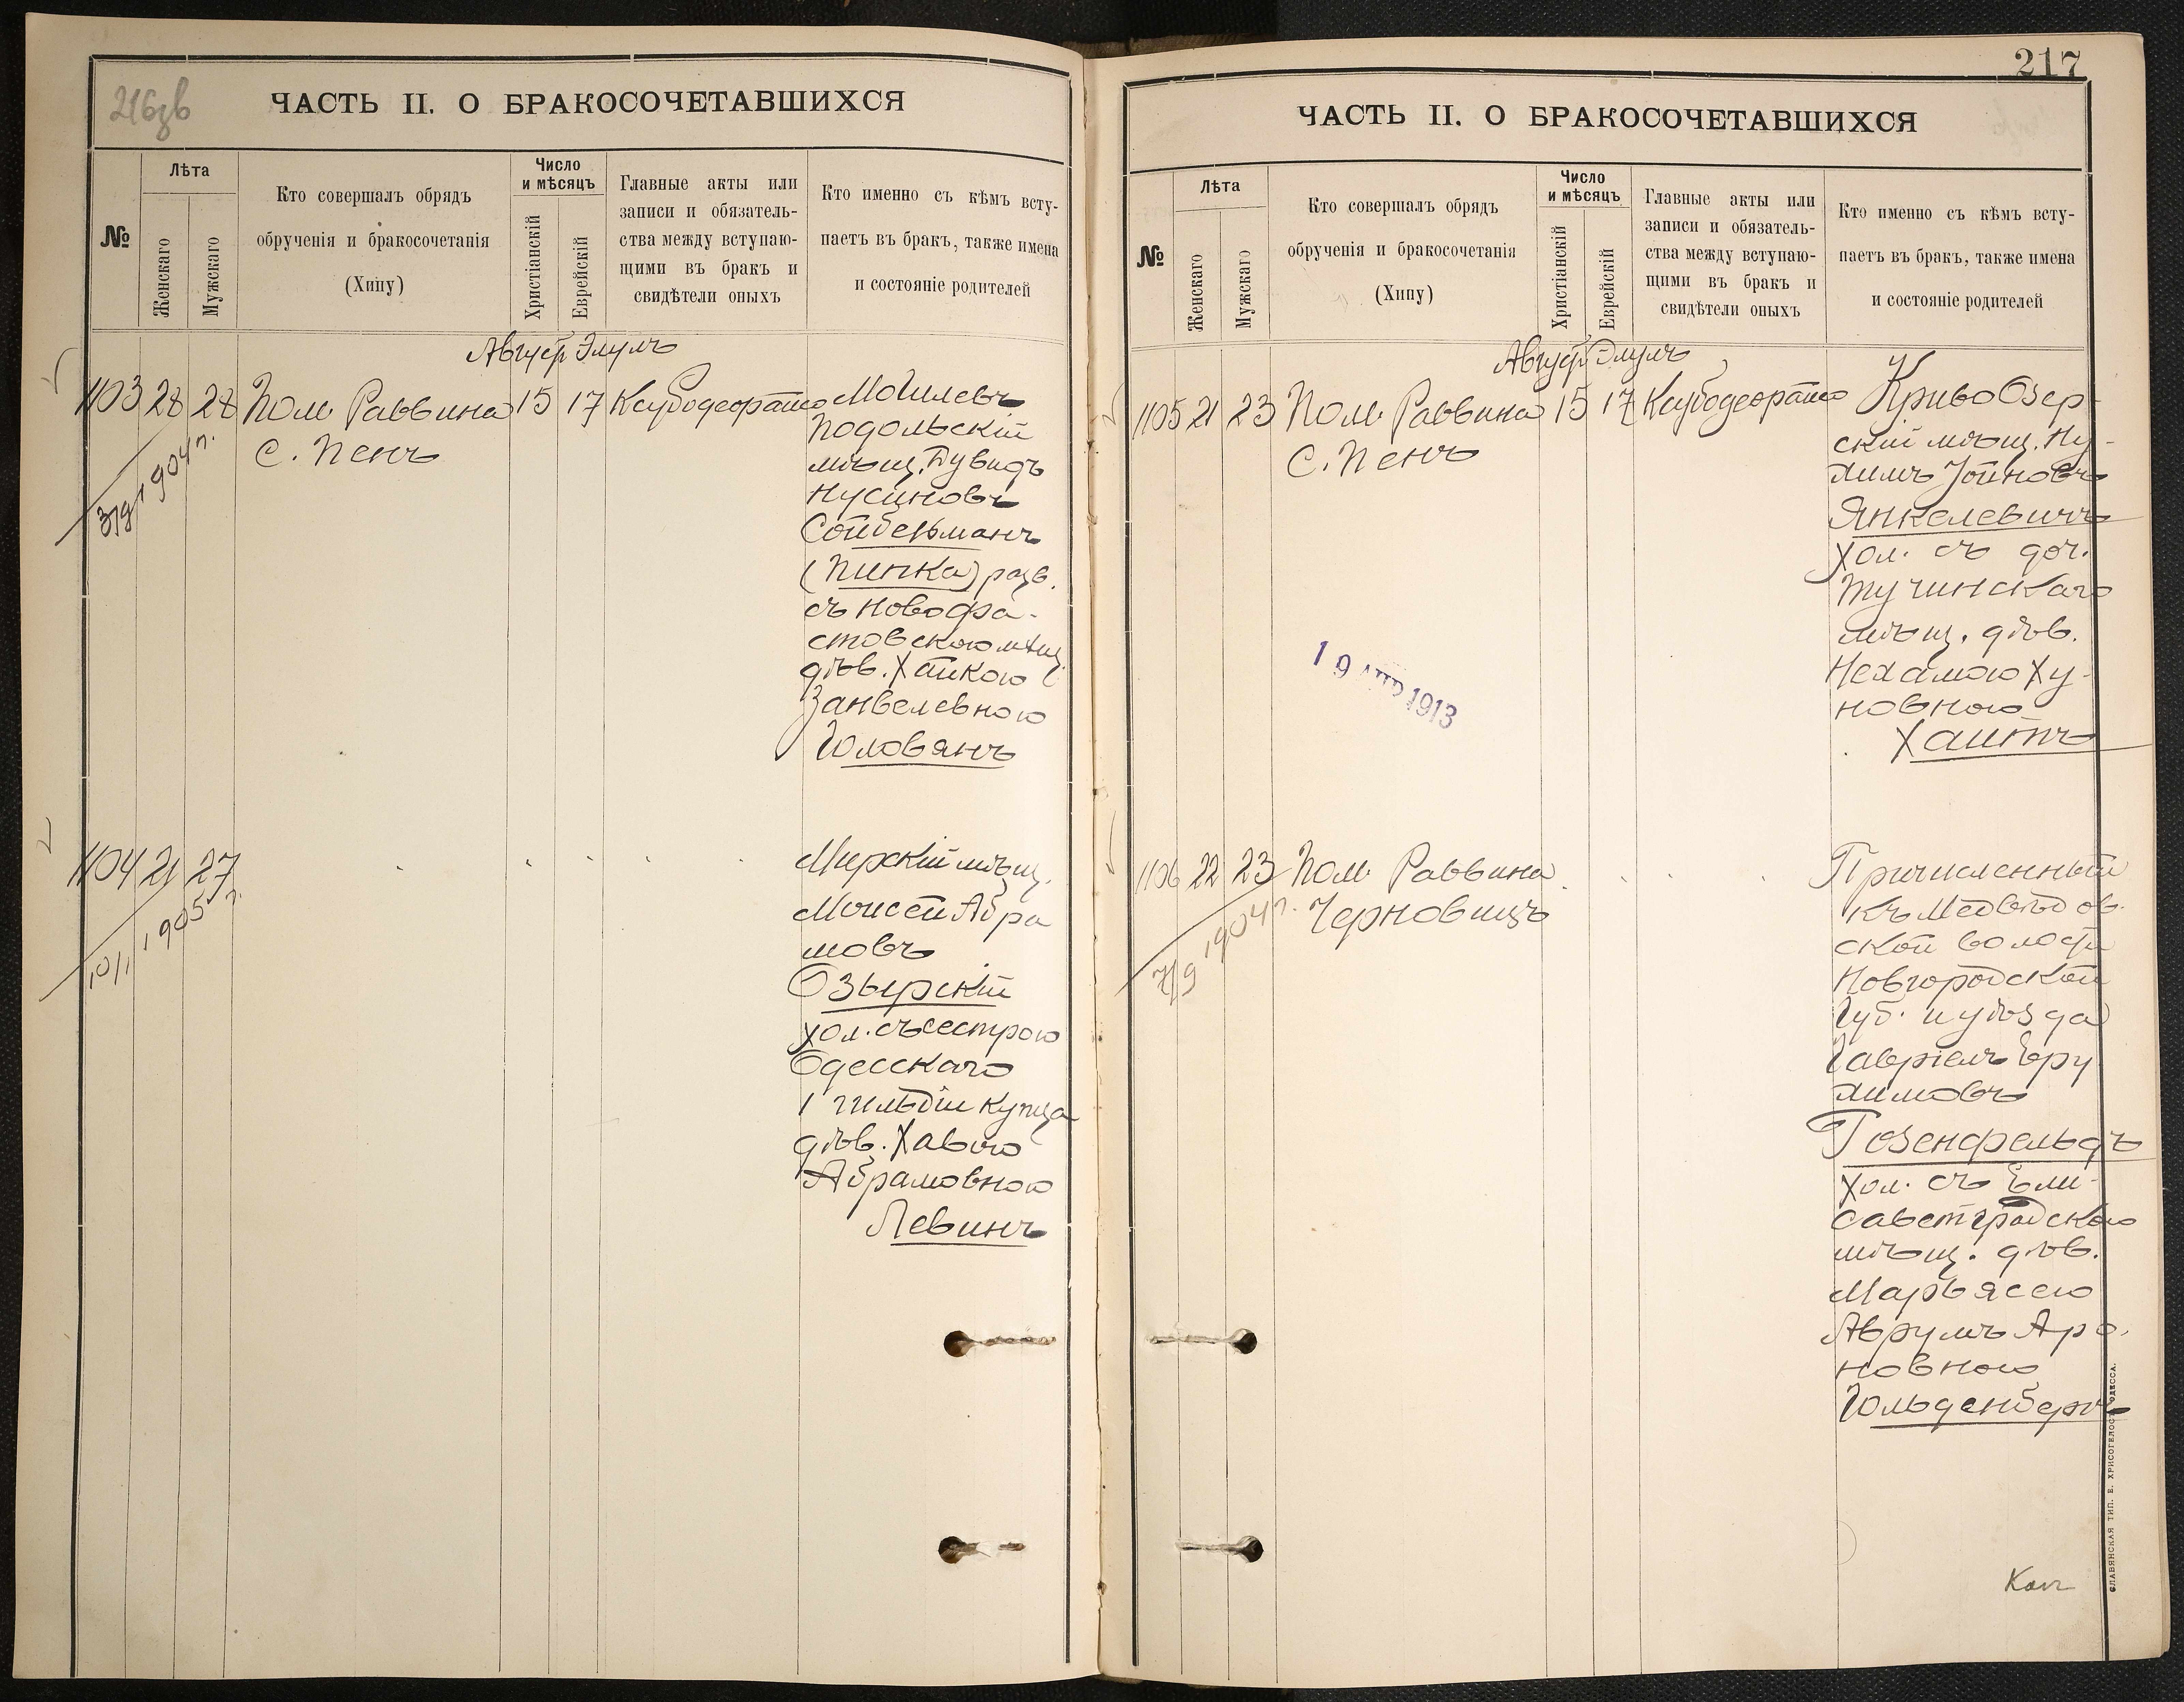 216зв
ЧАСТЬ II. О БРАКОСОЧЕТАВШИХСЯ
№
Лѣта
Женскаго
Мужскаго
Кто совершалъ обрядъ
обрученія и бракосочетанія
(Хипу)
Число
и мѣсяцъ
Христіанскій
Еврейскій
Главные акты или
записи и обязатель-
ства между вступаю-
щими въ бракъ и
свидѣтели оныхъ
Кто именно съ кѣмъ всту-
паетъ въ бракъ, также имена
и состояніе родителей
Август Элулъ
1103 28 28 Пом. Раввина 15 17
С. Пенъ
3/9 1904 г.
Могилевъ
Подольскій
мѣщ. Дувидъ
Нусиновъ
Сойберманъ
(Пипка) разв.
съ Новофа-
стовскою мѣщ.
дѣв. Хайкою
Занвелевною
Головянъ
1104 21 27
10/1 1905 г.
Мирскій мѣщ.
Моисей Абра
мовъ
Озырскій
хол. съ сестрою
Одесскаго
1 гильдіи купца
дѣв. Хавою
Абрамовною
Левинъ
217
ЧАСТЬ II. О БРАКОСОЧЕТАВШИХСЯ
№
Лѣта
Женскаго
Мужскаго
Кто совершалъ обрядъ
обрученія и бракосочетанія
(Хипу)
Число
и мѣсяцъ
Христіанскій
Еврейскій
Главные акты или
записи и обязатель-
ства между вступаю-
щими въ бракъ и
свидѣтели оныхъ
Кто именно съ кѣмъ всту-
паетъ въ бракъ, также имена
и состояніе родителей
Август Элулъ
1105 21 23 Пом. Раввина 15 17
С. Пенъ
КривоОзер-
скій мѣщ. Ну-
химъ Іойновъ
Янкелевичъ
хол. съ доч.
Тучинскаго
мѣщ. дѣв.
Нехамою Ху-
новною
Хаитъ
19 АПР 1913
1106 22 23 Пом. Раввина
Черновицъ
7/9 1904 г.
Причисленный
къ Медвѣдов-
ской волости
Новгородской
Губ. и уѣзда
Гавріель Еру
химовъ
Розенфельдъ
хол. съ Ели-
саветградскою
мѣщ. дѣв.
Марьясею
Аврумъ Аро-
новною
Гольденбергъ
СЛАВЯНСКАЯ ТИП. Е. ХРИСОГЕЛОСЪ ОДЕССА.